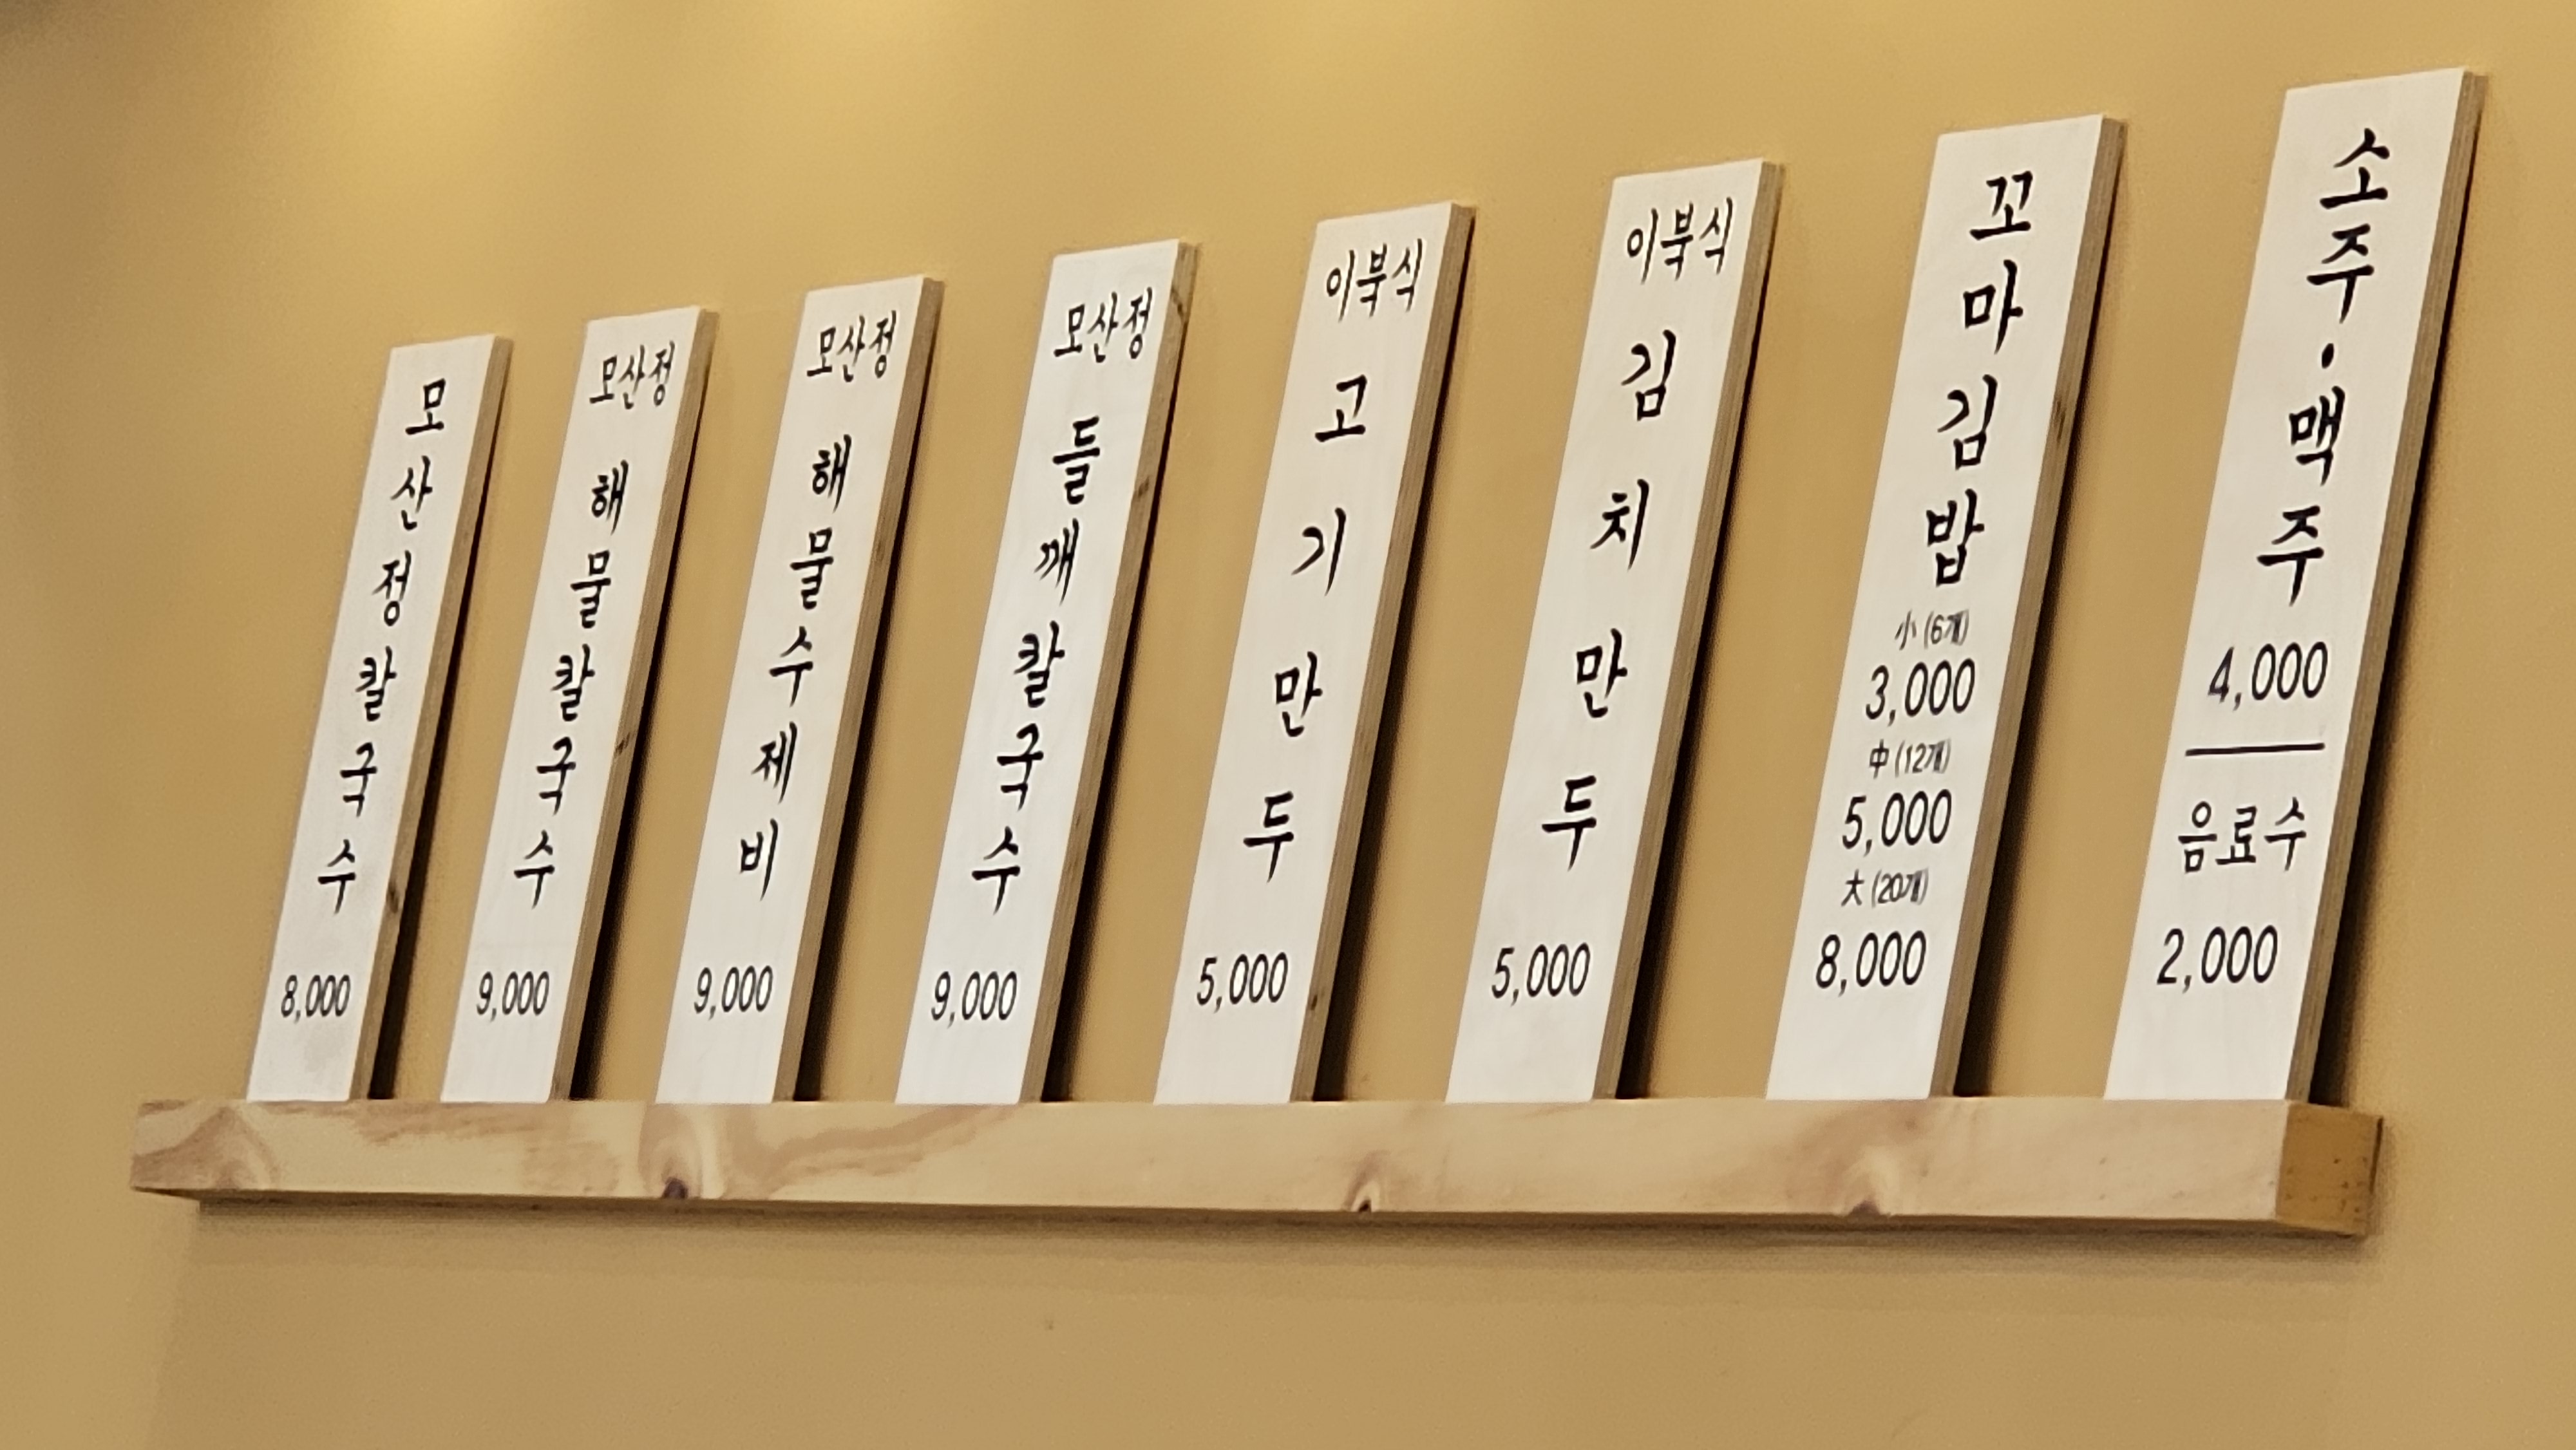 모산정칼국수
8,000
모산정
해물칼국수
9,000
모산정
해물수제비
9,000
모산정
들깨칼국수
9,000
이북식
고기만두
5,000
이북식
김치만두
5,000
꼬마김밥
小 (6개)
3,000
中 (12개)
5,000
大 (20개)
8,000
소주·맥주
4,000
음료수
2,000